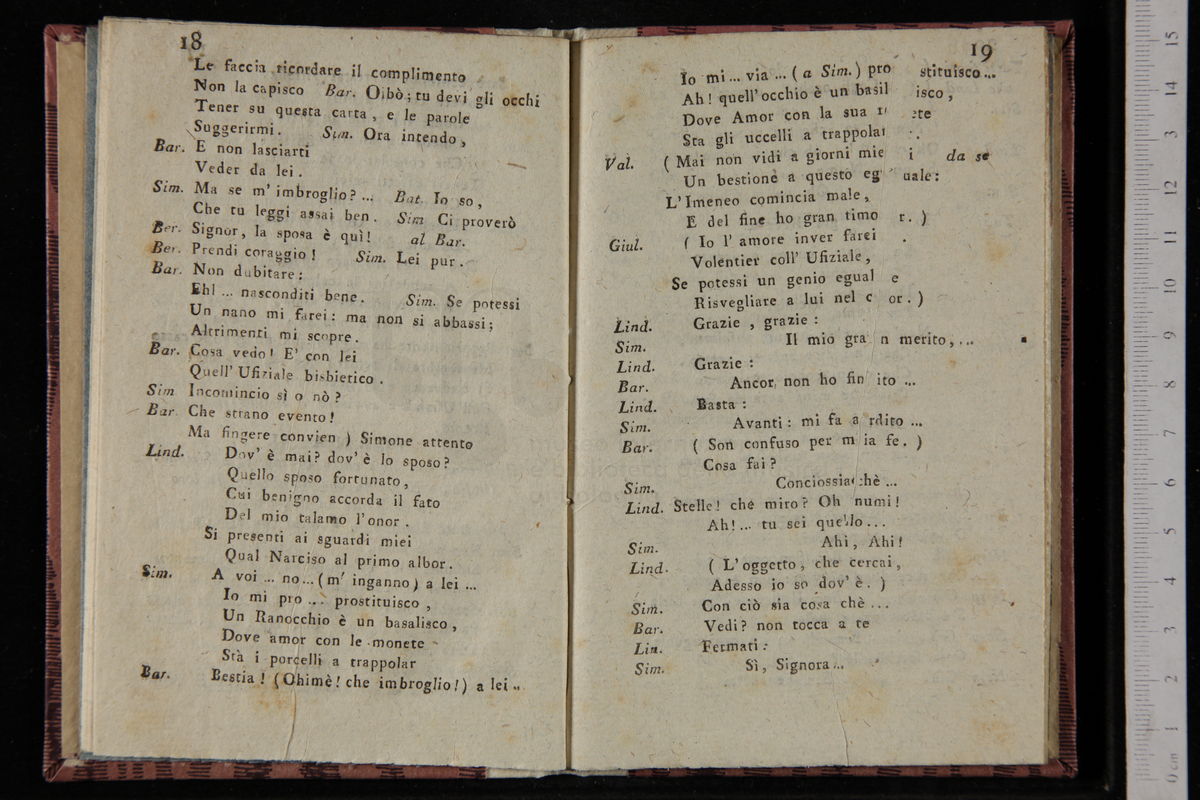 18
Le faccia ricordare il complimento
Non la capisco Bar. Oibò; tu devi gli occhi
Tener su questa carta, e le parole
Suggerirmi. Sim. Ora intendo,
Bar. E non lasciarti
Veder da lei.
Sim. Ma se m' imbroglio? ... Bat. Io so,
Che tu leggi assai ben. Sim Ci proverò
Ber. Signor, la sposa è quì! al Bar.
Ber. Prendi coraggio! Sim. Lei pur.
Bar. Non dubitare:
Ehl ... nasconditi bene. Sim. Se potessi
Un nano mi farei: ma non si abbassi;
Altrimenti mi scopre.
Bar. Cosa vedo! E' con lei
Quell' Ufiziale bisbietico.
Sim Incomincio sì o nò?
Bar Che strano evento!
Ma fingere convien ) Simone attento
Lind. Dov' è mai? dov' è lo sposo?
Quello sposo fortunato,
Cui benigno accorda il fato
Del mio talamo l'onor.
Si presenti ai sguardi miei
Qual Narciso al primo albor.
Sim. A voi ... no... (m' inganno) a lei ...
Io mi pro ... prostituisco,
Un Ranocchio è un basalisco,
Dove amor con le monete
Stà i porcelli a trappolar
Bar. Bestia! (Ohimè! che imbroglio!) a lei ..
19
Io mi ... via ... (a Sim.) pro stituisco...
Ah! quell' occhio è un basil isco,
Dove Amor con la sua r ete
Sta gli uccelli a trappolar .
Val. (Mai non vidi a giorni mie i da se
Un bestione a questo eg uale:
L'Imeneo comincia male,
E del fine ho gran timo r. )
Giul. ( Io l' amore inver farei .
Volentier coll' Ufiziale,
Se potessi un genio egual e
Risvegliare a lui nel c or. )
Lind. Grazie, grazie:
Sim. Il mio gra n merito, ...
Lind. Grazie:
Bar. Ancor non ho fin ito ...
Lind. Basta:
Sim. Avanti: mi fa a rdito ...
Bar. ( Son confuso per m ia fe. )
Cosa fai?
Sim. Conciossiac chè ...
Lind. Stelle! che miro? Oh numi!
Ah!... tu sei quello...
Sim. Ahi, Ahi!
Lind. ( L'oggetto, che cercai,
Adesso io so dov' è. )
Sim. Con ciò sia cosa chè ...
Bar. Vedi? non tocca a te
Lin. Fermati:
Sim. Sì, Signora...
0 cm 1 2 3 4 5 6 7 8 9 10 11 12 13 14 15